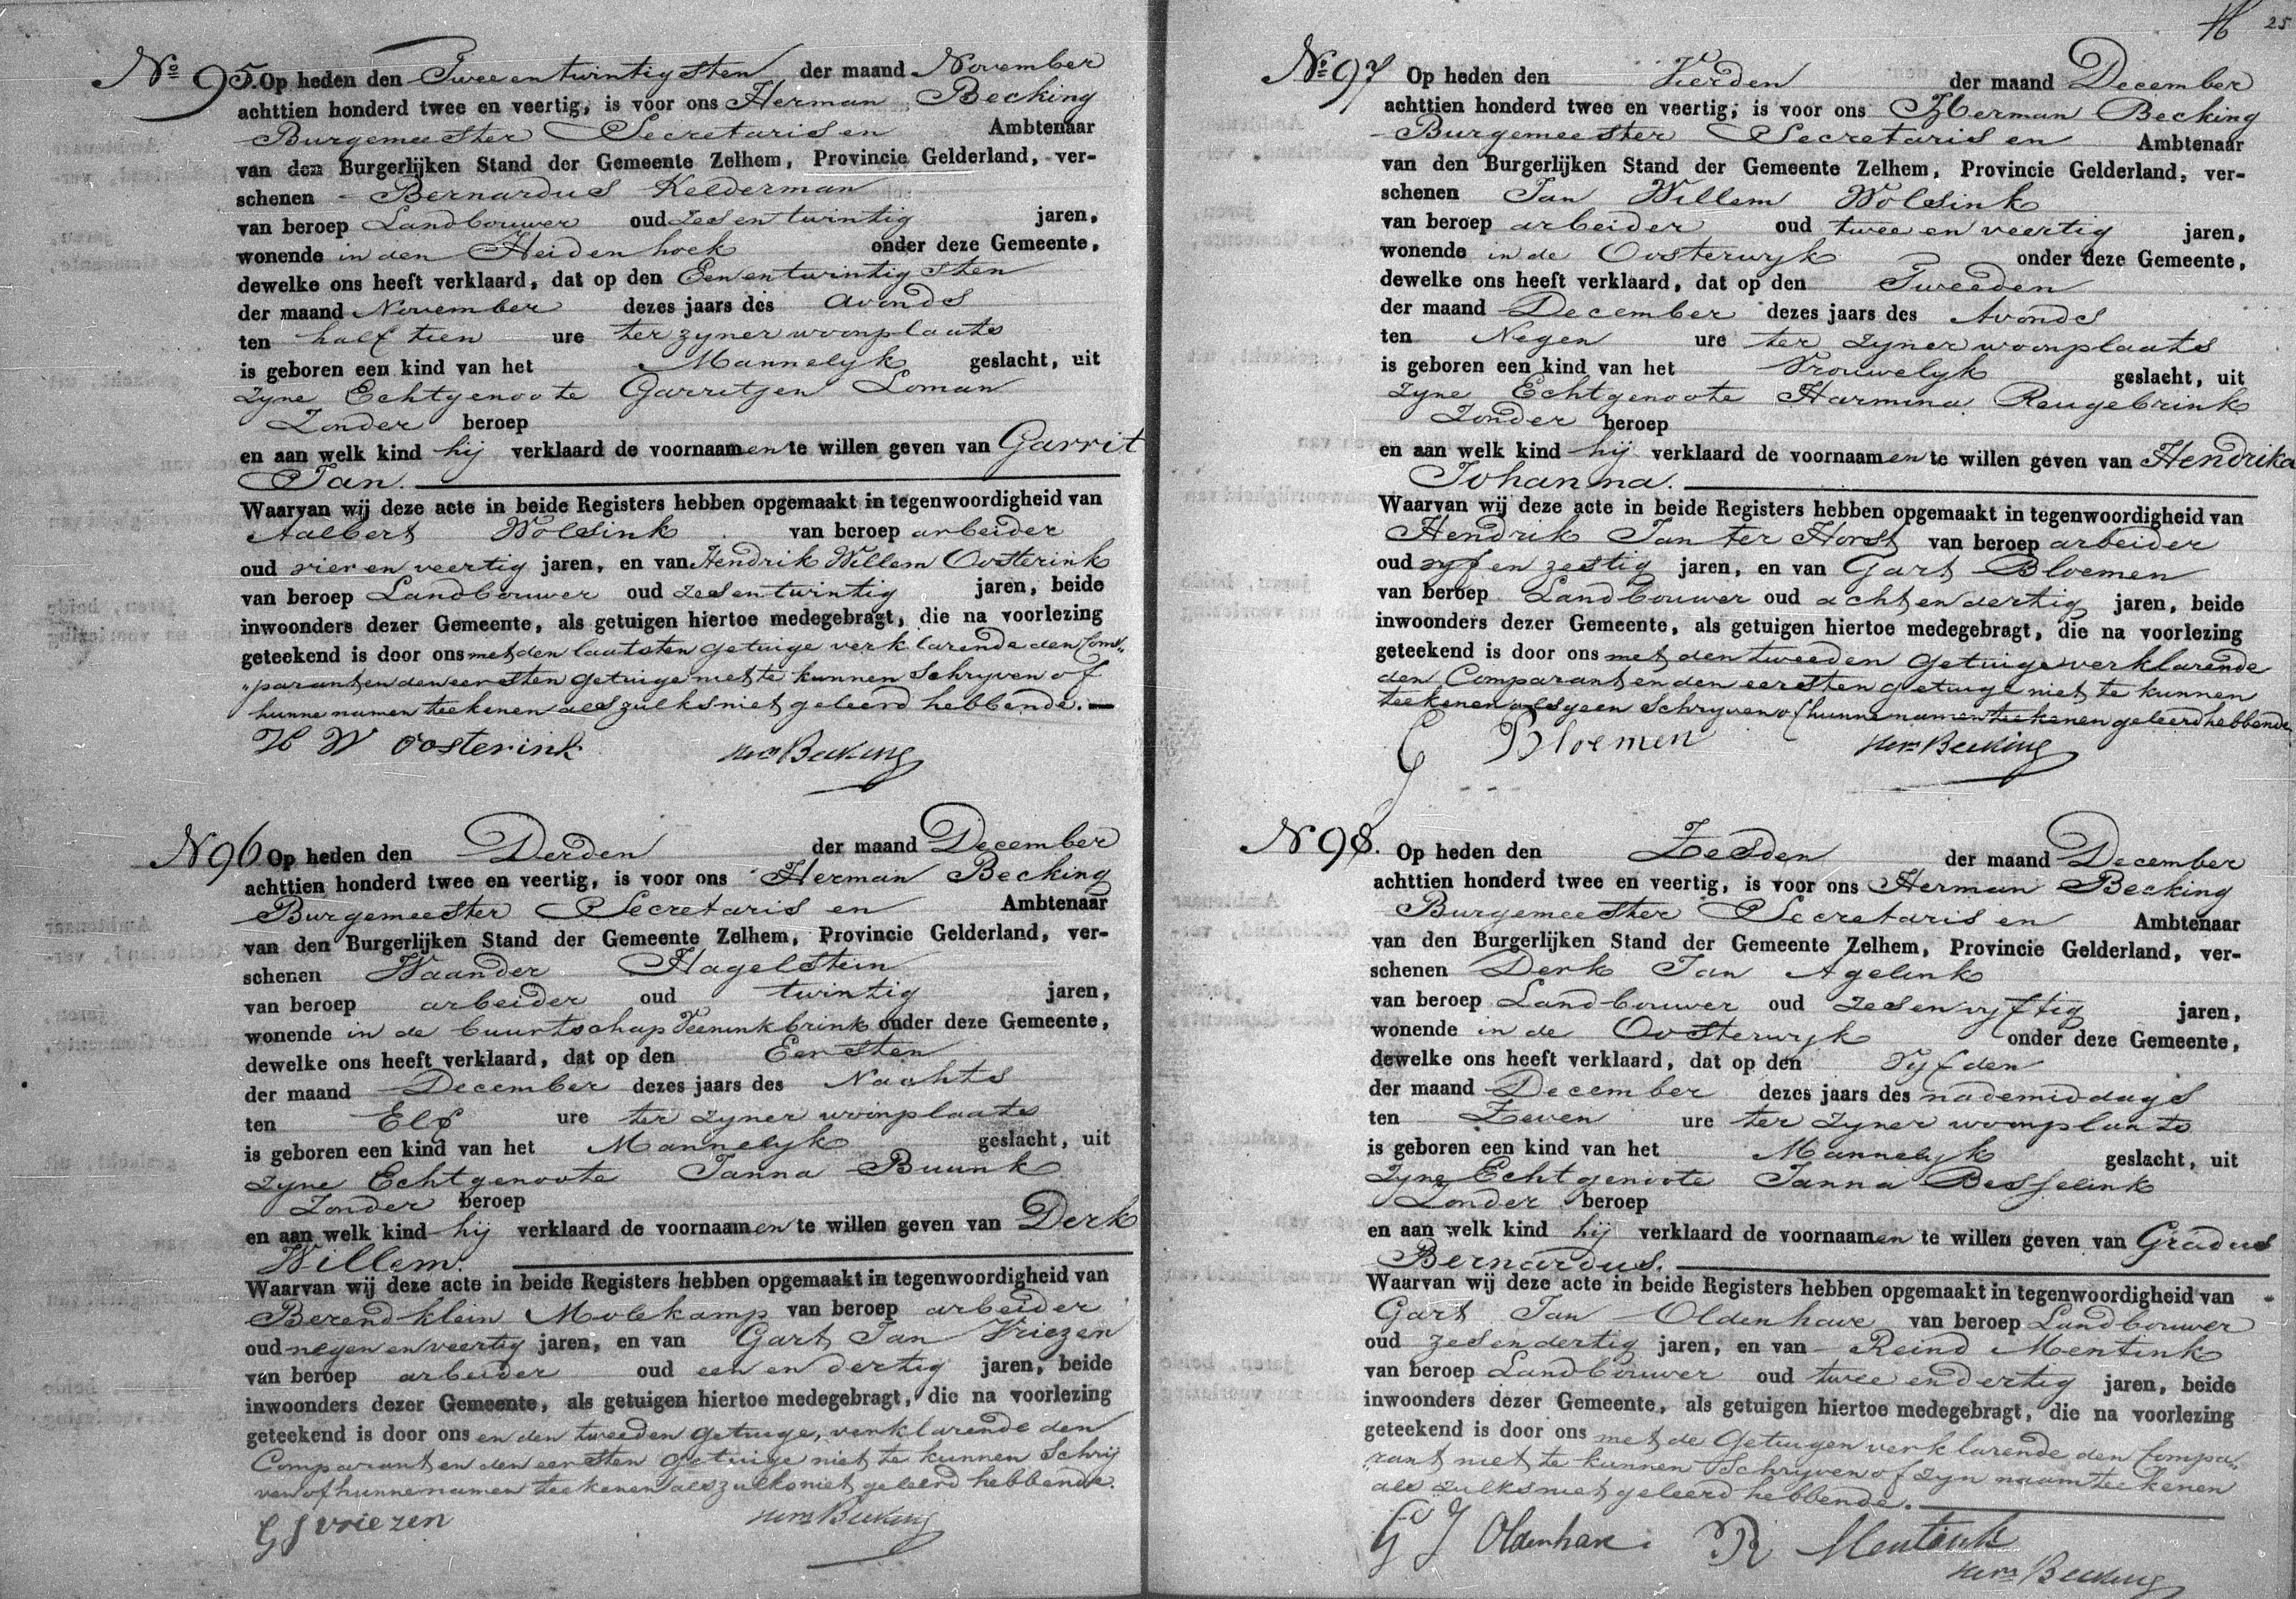 No 95. Op heden den Twee en twintigsten der maand November
achttien honderd twee en veertig, is voor ons Herman Becking
Burgemeester Secretaris en Ambtenaar
van den Burgerlijken Stand der Gemeente Zelhem, Provincie Gelderland, ver-
schenen Bernardus Kelderman
van beroep Landbouwer oud zes en twintig jaren,
wonende in den Heidenhoek onder deze Gemeente,
dewelke ons heeft verklaard, dat op den Een en twintigsten
der maand November dezes jaars des avonds
ten half tien ure ter zyner woonplaats
is geboren een kind van het Mannelyk geslacht, uit
zyne Echtgenoote Garritjen Loman
Zonder beroep
en aan welk kind hij verklaard de voornaamen te willen geven van Garrit
Jan.
Waarvan wij deze acte in beide Registers hebben opgemaakt in tegenwoordigheid van
Aalbert Wolsink van beroep arbeider
oud vier en veertig jaren, en van Hendrik Willem Oosterink
van beroep Landbouwer oud zes en twintig jaren, beide
inwoonders dezer Gemeente, als getuigen hiertoe medegebragt, die na voorlezing
geteekend is door ons met den laatsten getuige verklarende den Com„
„parant en den eersten getuige niet te kunnen schryven of
hunne namen teekenen als zulks niet geleerd hebbende.
H W Oosterink Hm Becking
N 96 Op heden den Derden der maand December
achttien honderd twee en veertig, is voor ons Herman Becking
Burgemeester Secretaris en Ambtenaar
van den Burgerlijken Stand der Gemeente Zelhem, Provincie Gelderland, ver-
schenen Waander Hagelstein
van beroep arbeider oud twintig jaren,
wonende in de buurtschap Veeninkbrink onder deze Gemeente,
dewelke ons heeft verklaard, dat op den Eersten
der maand December dezes jaars des Nachts
ten Elf ure ter zyner woonplaats
is geboren een kind van het Mannelyk geslacht, uit
zyne Echtgenoote Janna Buunk
Zonder beroep
en aan welk kind hij verklaard de voornaamen te willen geven van Derk
Willem.
Waarvan wij deze acte in beide Registers hebben opgemaakt in tegenwoordigheid van
Berend klein Molekamp van beroep arbeider
oud negen en veertig jaren, en van Gart Jan Vriezen
van beroep arbeider oud een en dertig jaren, beide
inwoonders dezer Gemeente, als getuigen hiertoe medegebragt, die na voorlezing
geteekend is door ons en den tweeden getuige, verklarende den
Comparant en den eersten getuige niet te kunnen Schrij
ven of hunne namen teekenen als zulks niet geleerd hebbende.
G J Vriezen Hm Becking
25
No 97 Op heden den Vierden der maand December
achttien honderd twee en veertig, is voor ons Herman Becking
Burgemeester Secretaris en Ambtenaar
van den Burgerlijken Stand der Gemeente Zelhem, Provincie Gelderland, ver-
schenen Jan Willem Wolsink
van beroep arbeider oud twee en veertig jaren,
wonende in de Oosterwyk onder deze Gemeente,
dewelke ons heeft verklaard, dat op den Tweeden
der maand December dezes jaars des Avonds
ten Negen ure ter zyner woonplaats
is geboren een kind van het Vrouwelyk geslacht, uit
zyne Echtgenoote Harmina Reugebrink
Zonder beroep
en aan welk kind hij verklaard de voornaamen te willen geven van Hendrika
Johanna.
Waarvan wij deze acte in beide Registers hebben opgemaakt in tegenwoordigheid van
Hendrik Jan ter Horst van beroep arbeider
oud vyf en zestig jaren, en van Gart Bloemen
van beroep Landbouwer oud acht en dertig jaren, beide
inwoonders dezer Gemeente, als getuigen hiertoe medegebragt, die na voorlezing
geteekend is door ons met den tweeden getuige verklarende
den Comparant en den eersten getuige niet te kunnen
teekenen als geen schryven of hunne namen teekenen geleerd hebbende
G Bloemen Hm Becking
N 98. Op heden den Zesden der maand December
achttien honderd twee en veertig, is voor ons Herman Becking
Burgemeester Secretaris en Ambtenaar
van den Burgerlijken Stand der Gemeente Zelhem, Provincie Gelderland, ver-
schenen Derk Jan Agelink
van beroep Landbouwer oud zes en vyftig jaren,
wonende in de Oosterwyk onder deze Gemeente,
dewelke ons heeft verklaard, dat op den Vyfden
der maand December dezes jaars des nademiddags
ten Zeven ure ter zyner woonplaats
is geboren een kind van het Mannelyk geslacht, uit
zyne Echtgenoote Janna Besselink
Zonder beroep
en aan welk kind hij verklaard de voornaamen te willen geven van Gradus
Bernardus.
Waarvan wij deze acte in beide Registers hebben opgemaakt in tegenwoordigheid van
Gart Jan Oldenhave van beroep Landbouwer
oud zes en dertig jaren, en van Reind Mentink
van beroep Landbouwer oud twee en dertig jaren, beide
inwoonders dezer Gemeente, als getuigen hiertoe medegebragt, die na voorlezing
geteekend is door ons met de Getuigen verklarende den Compa„
„rant niet te kunnen Schryven of zyn naam teekenen
als zulks niet geleerd hebbende.
G J Oldenhave R Mentink
Hm Becking